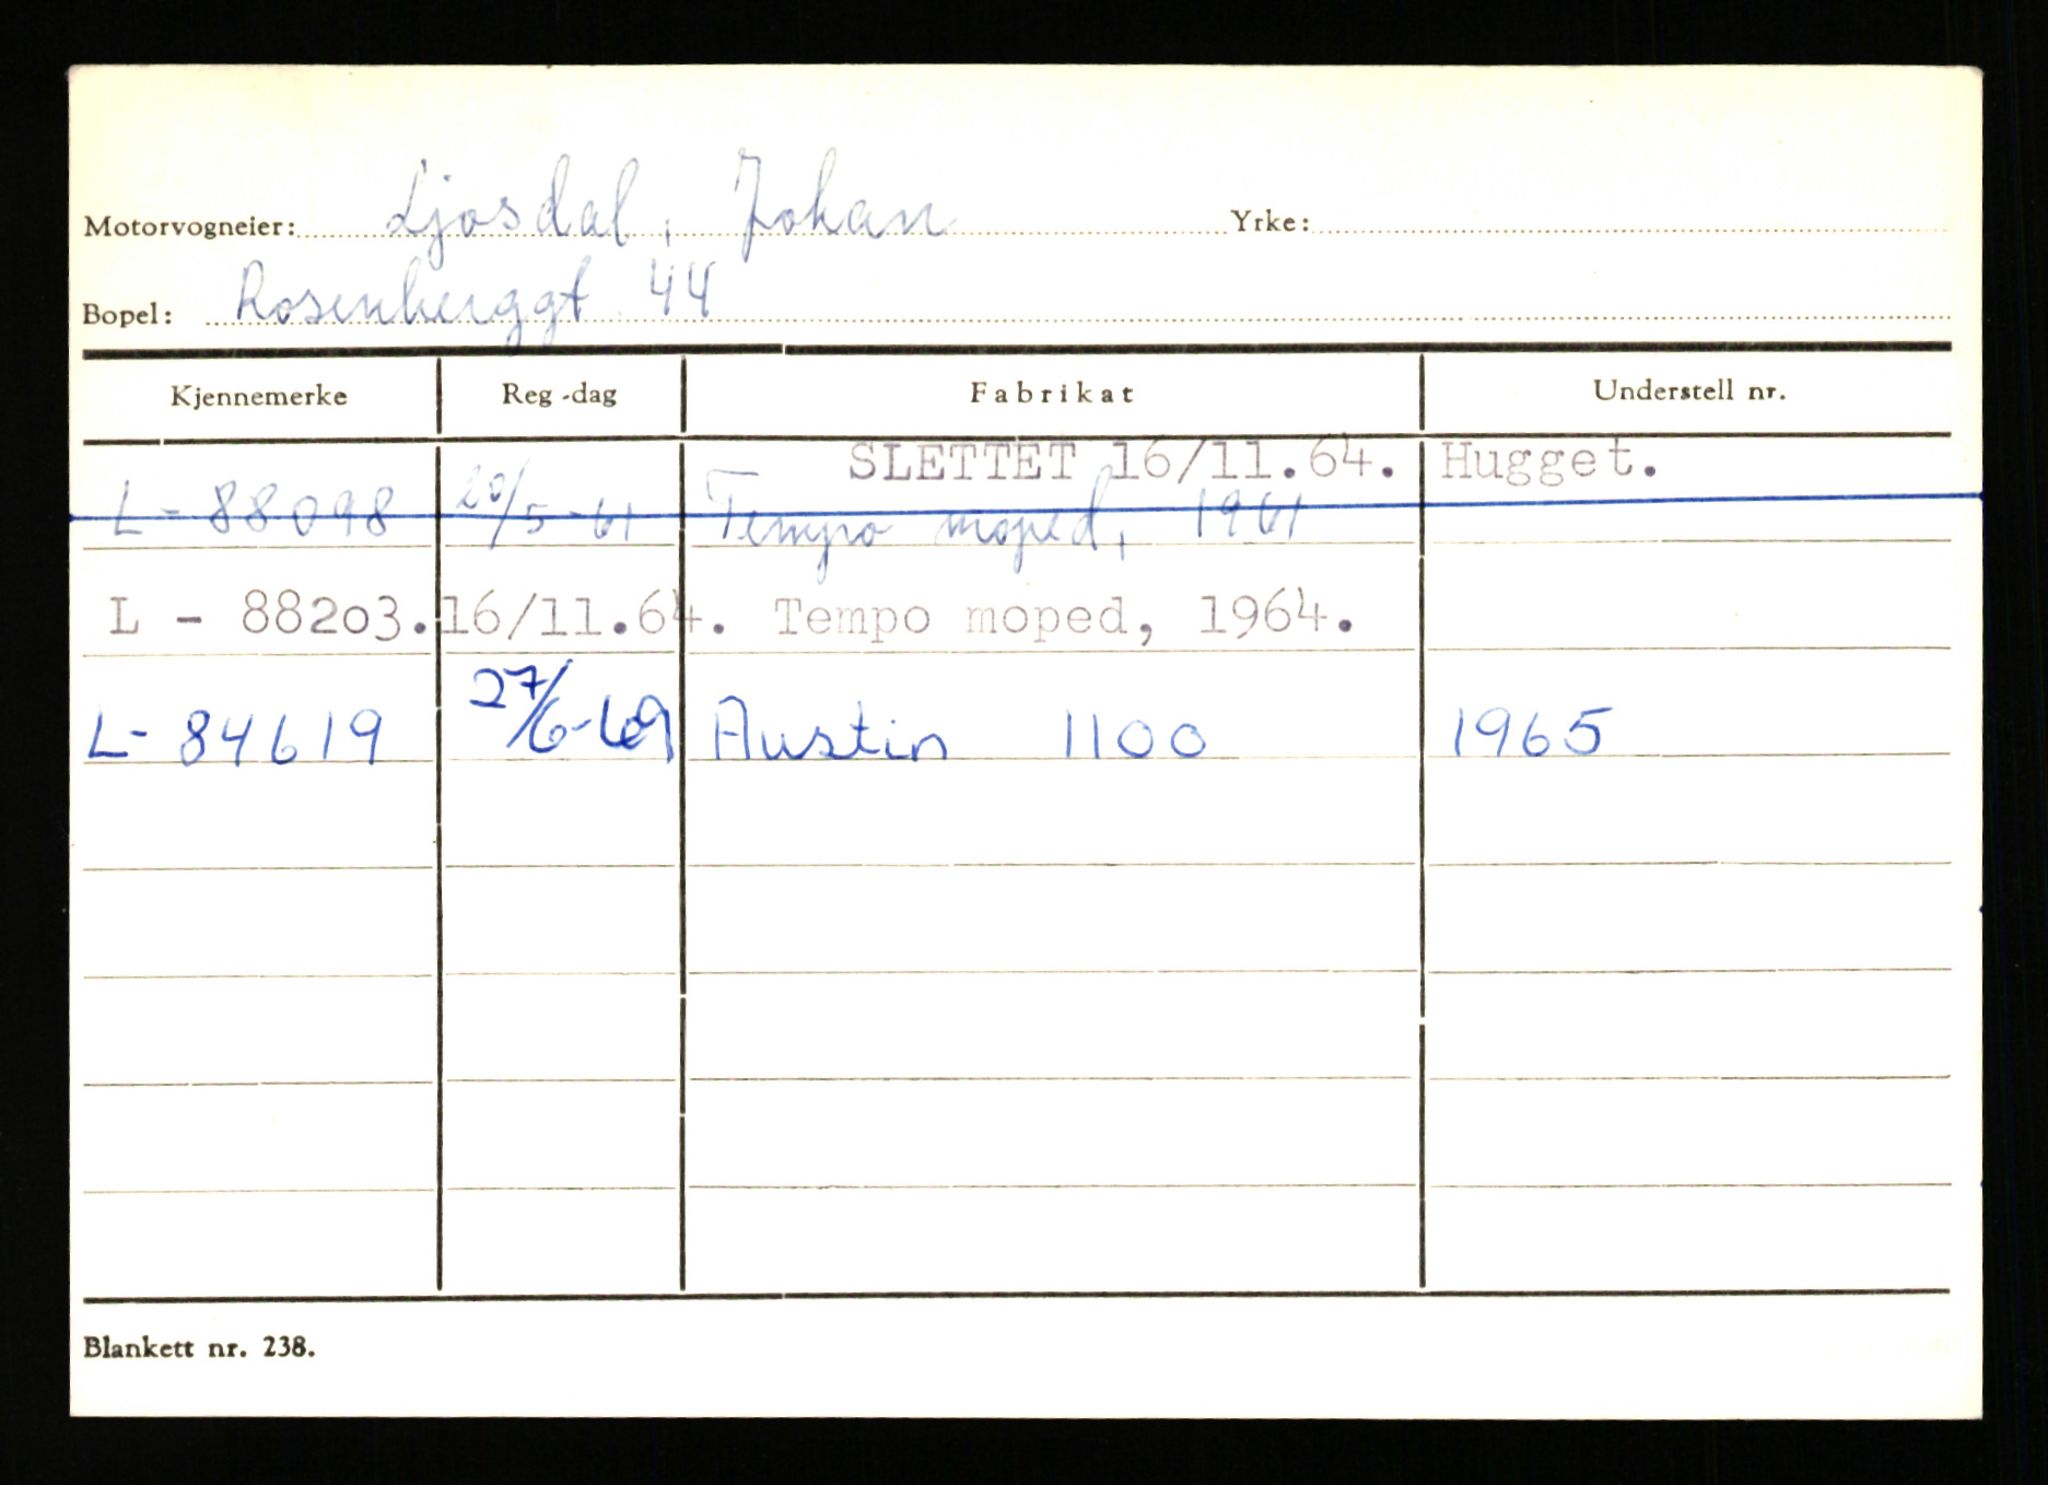 Motorvogneier: Ljosdal, Johan Yrke:
Bopel: Rosenberggt 44
Kjennemerke Reg-dag Fabrikat Understell nr.
SLETTET 16/11.64. Hugget.
L-88098 20/5-61 Tempo moped, 1961
L - 88203. 16/11.64. Tempo moped, 1964.
L-84619 27/6-69 Austin 1100 1965
Blankett nr. 238.